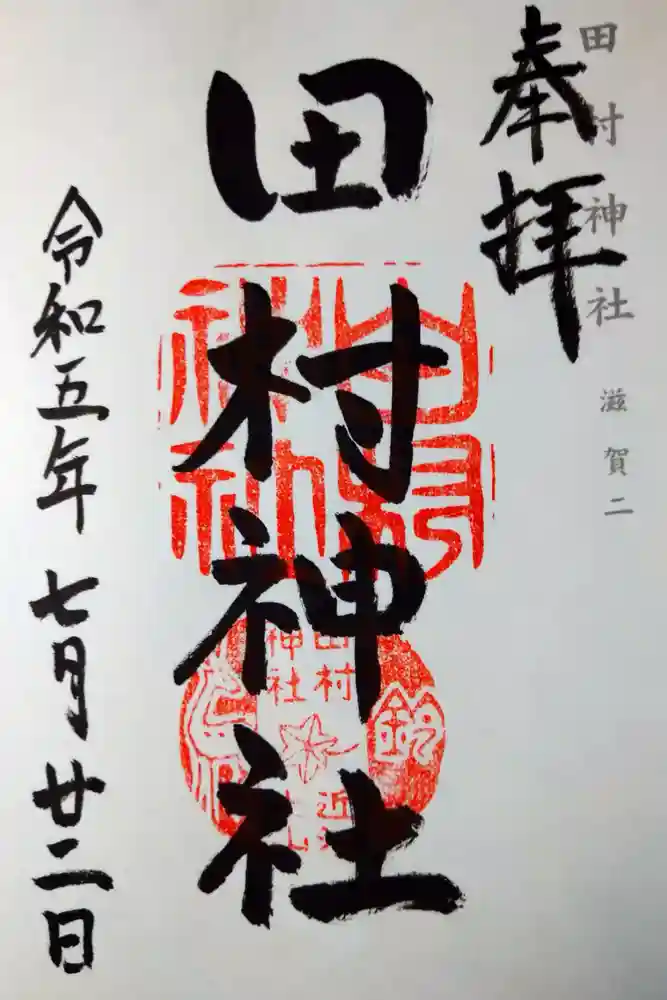 田村神社 滋賀二
奉拝
田村神社
田村
神社
鈴
令和五年七月廿二日